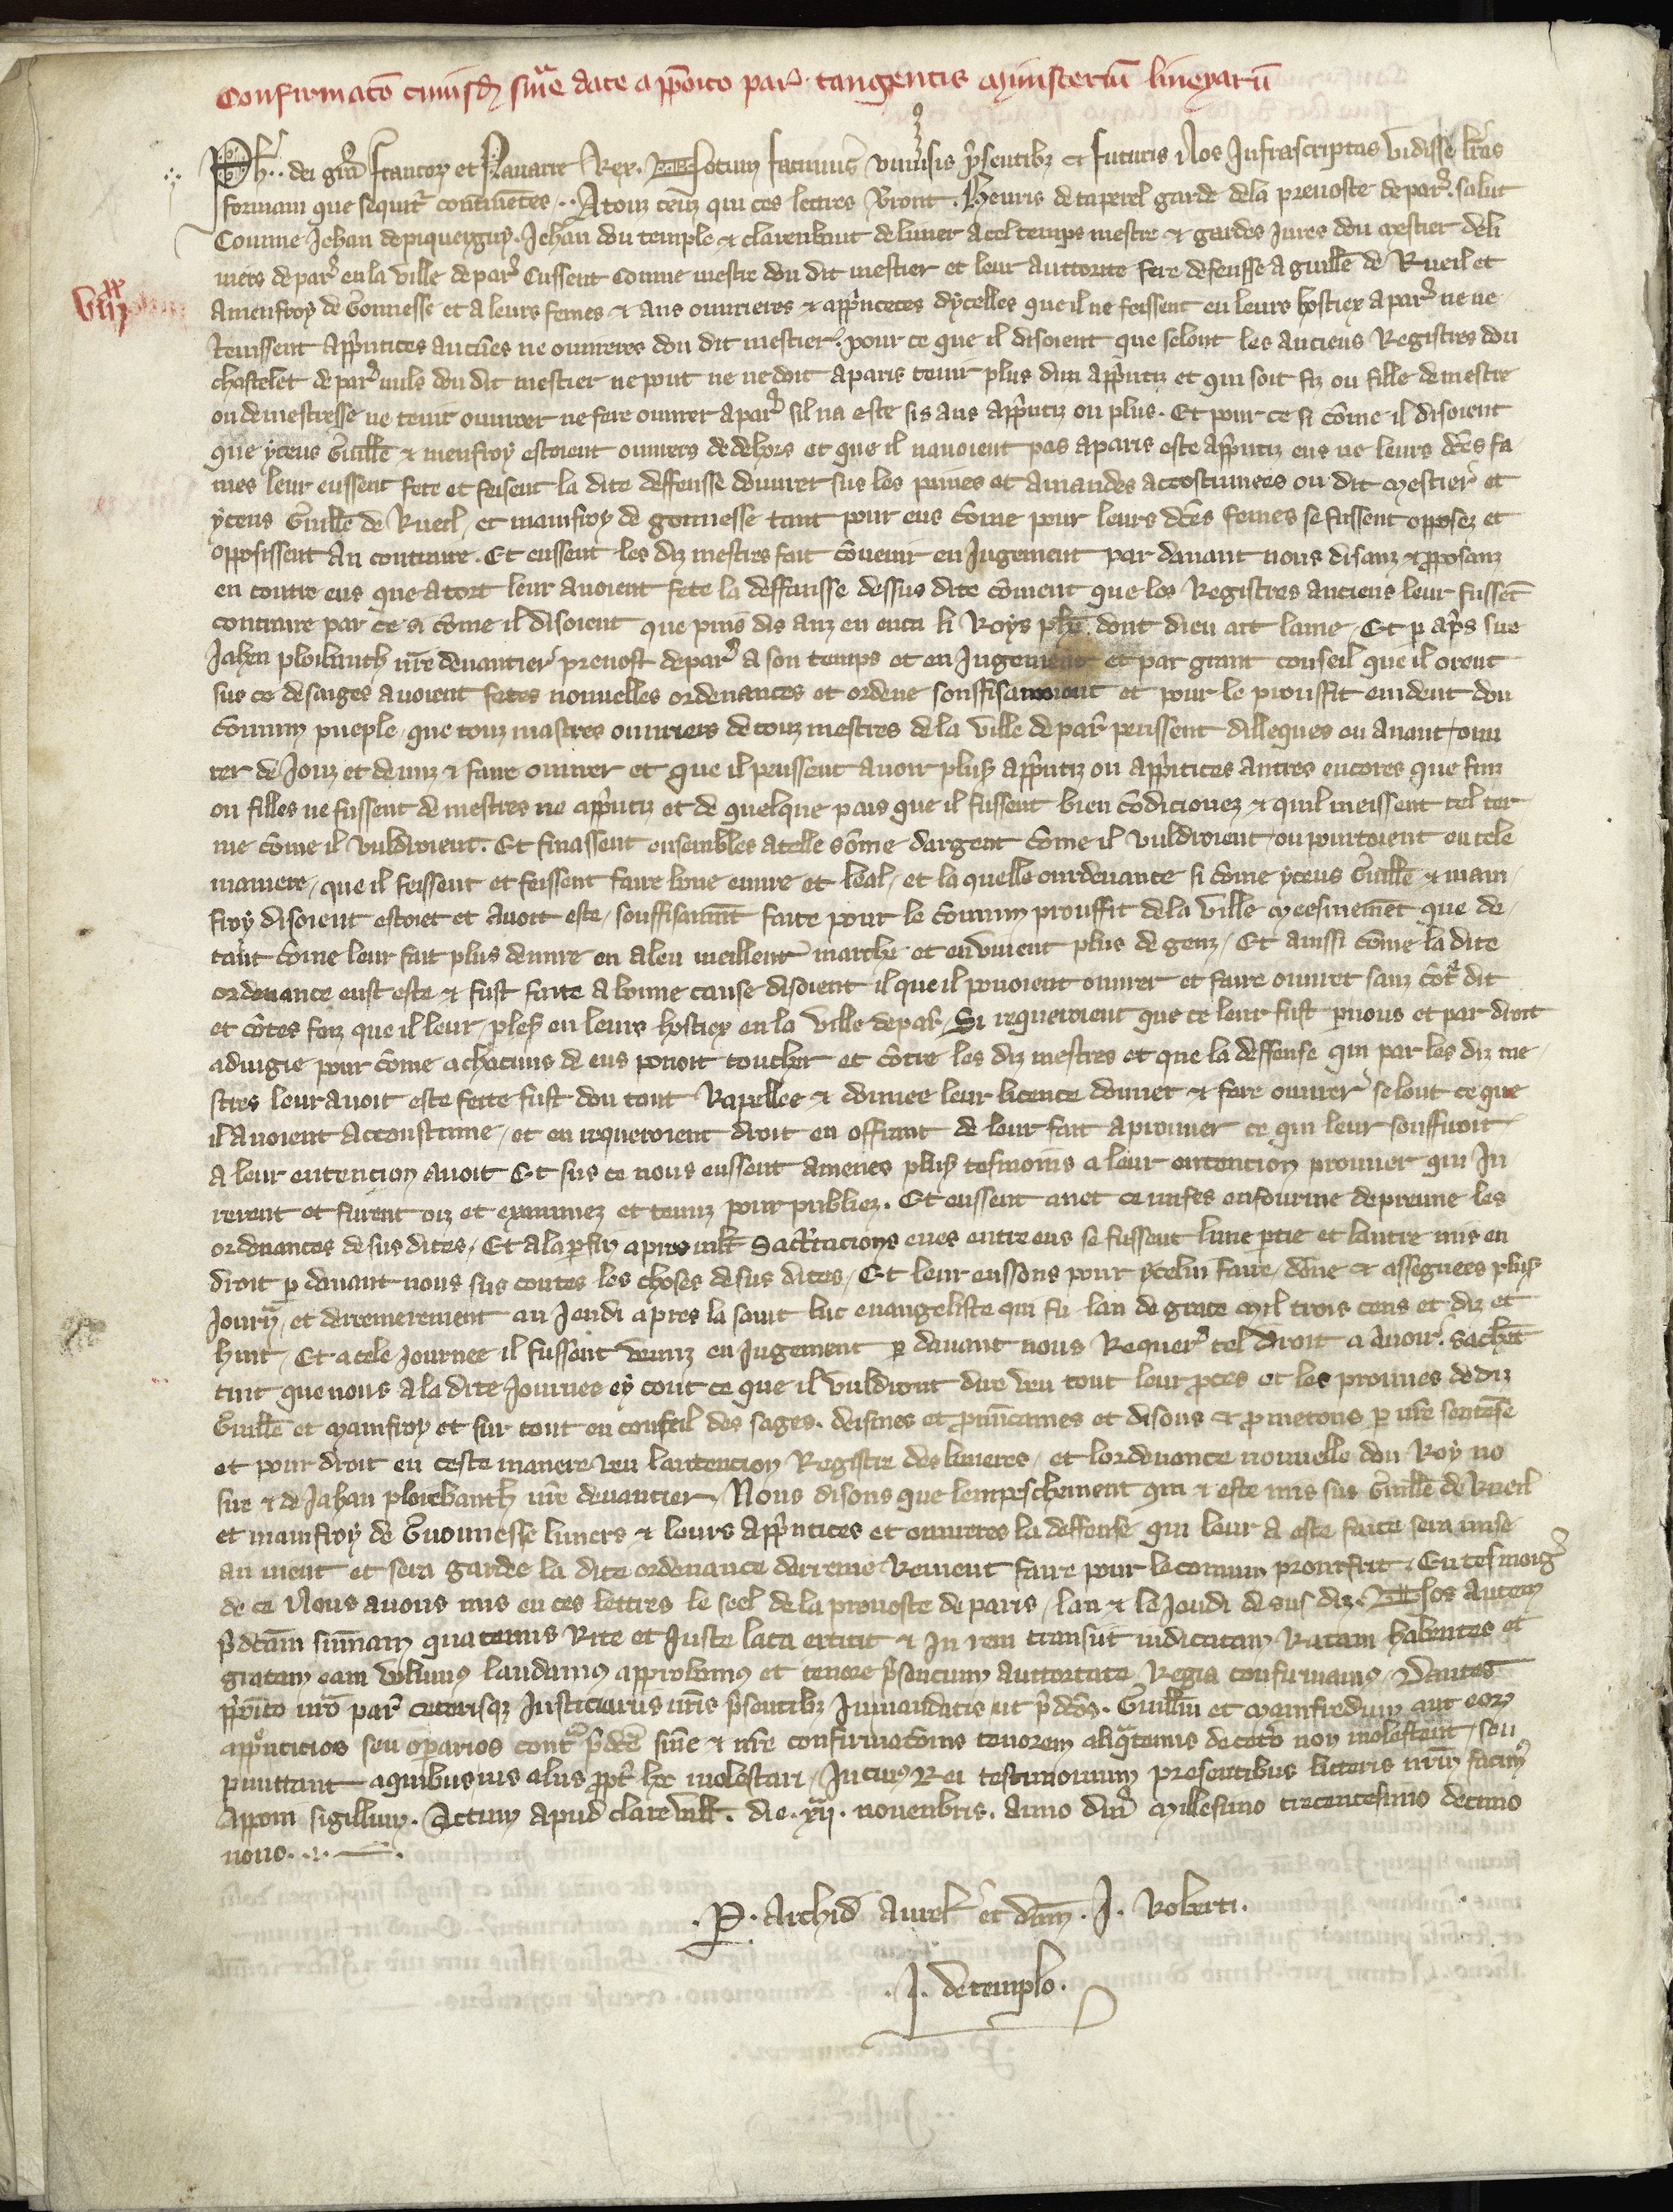 Confirmato cuiusd sn̄ie date a p̄posito par̄ tangentis mynisteriū lineyarū
Ph. dei gr̄a Francor et Navarre Rex. Notum facimus universis p̄sentibz et futuris Nos Infrascriptas vidisse lr̄as
formam que sequitr̄ continentes. A touz ceus qui ces lettres verront. Henris de taperel garde de la prevoste de par̄. salut
Comme Jehan de piquergny. Jehan dou temple et clarenbaut de linier a cel temps mestre et gardes jures dou mestier de li
niers de par̄ en la ville de par̄ Eussent comme mestre dou dit mestier et leur auttorite fere defensse a guille de Rueil et
viijxx
a menfroy de Gonnesse et a leurs femes et aus ouvrieres et app̄ntices dycelles que il ne feissent en leurs hostiex a par̄ ne ne
tenissent app̄ntices aucunes ne ouvreres dou dit mestier. pour ce que il disoient que selonc les anciens Registres dou
chastelet de par̄ nuls dou dit mestier ne pout ne ne doit a paris tenir plus dun app̄ntiz et qui soit fiz ou fille de mestre
ou de mestresse ne tenir ouvrer ne fere ouvrer a par̄ sil na este sis ans app̄ntiz ou plus. Et pour ce si cōme il disoient
que yceus Guille et menfroy estoient ouvriers de dehors et que il navoient pas a paris este app̄ntiz eus ne leurs dc̄es fa
mes leur eussent fete et feisent la dite deffensse douvrer sus les paines et amandes accostumees ou dit mestier et
yceus Guille de Rueil, et mainfroy de gonnesse tant pour eus cōme pour leurs dc̄es femes se fussent opposez et
opposissent au contraire. Et eussent les diz mestres fait cōvenir en Jugement par devant nous disanz et p̄posanz
en contre eus que a tort leur avoient fete la deffansse dessus dite cōment que les Registres anciens leur fussēt
contraire par ce si cōme il disoient que puis dis anz en enca li Roys phē. dont dieu ait lame. Et p ap̄s sire
Jahen ploibauch nr̄e devantier prevost de par̄ a son temps et en Jugement et par grant conseil que il orent
sus ce de saiges avoient fetes nouvelles ordenances et ordene souffisanment et pour le prouffit evident dou
commun pueple, que touz mastres ouvriers de touz mestres de la ville de par̄ peussent dilleques en avant ouv
rer de Jouz et de nuiz et faire ouvrer et que il peussent avoir plus app̄ntiz ou app̄ntices autres encores que fiuz
ou filles ne fussent de mestres ne app̄ntiz et de quelque pais que il fussent bien cōdicionez et quil meissent tel ter
me cōme il vuldroient. Et finassent ensembles a telle sōme dargent cōme il vuldroient, ou pourroient en tele
maniere, que il feissent et feissent faire bone euvre et leal, et la quelle ourdenance si cōme yceus Guille et main
froy disoient estoiet et avoit este, souffisanmt faite pour le commun prouffit de la ville meesmemēt que de
tant cōme leur fait plus denvre en a len meilleur marche et en vivient plus de genz, Et ainssi cōme la dite
ordenance eust este et fust faite a bonne cause disoient il que il povoient ouvrer et faire ouvrer sanz cōt̄ dit
et cōtes foiz que il leur plest en leurs hostiex en la ville de par̄, Si requeroient que ce leur fust p nous et par droit
adiugie pour cōme a chacuns de eus povoit toucher et cōtre les diz mestres et que la deffense qui par les diz me
stres leur avoit este fette fust dou tout Rapellee et donnee leur licence douvrer et fere ouvrer selont ce que
il avoient accoustume, et en requeroient droit en offrant de leur fait a prouver ce qui leur souffiroit
a leur entencion avoir Et sus ce nous eussent amenes plus tesmoins a leur entencion prouver qui Ju
rerent et furent oiz et examinez et tenuz pour publiez. Et eussent avec ce mises en fourme de preuve les
ordenances de sus dites, Et a la p̄fin apres mlt daltercacions eues entre eus se fussent lune p̄tie et lautre mis en
droit p devant nous sus toutes les choses de sus dites, Et leur eussons pour ycelui faire, dōne et assegnees plus
Journ̄, et derrenerement au Jeudi apres la saint luc euvangeliste qui fu lan de grace mil trois cens et diz et
huit, Et a cele Journee il fussent venuz en Jugement p devant nous Requer̄ tel droit a avoir. Sachēt
tuit que nous a la dite Journee oy tout ce que il vuldrent dire veu tout leur p̄ces et les preuves de diz
Guille et mainfroy et sur tout eu conseil des sages. deismes et p̄nūcames et disons et p̄metons p nr̄e sentēse
et pour droit en ceste maniere veu lantencion Registre des linieres, et lordenance nouvelle dou Roy no
sire et de Jahan ploiebauch nr̄e devantier, Nous disons que lempeschement qui et este mis sus Guille de Rueil
et mainfroy de Guonnesse liniers et leurs app̄ntices et ouvreres la deffense qui leur a este faite sera mise
au nient et sera gardee la dite ordenance derrene Rement faite pour le commun prouffit. En tesmoiḡ
de ce Nous avons mis en ces lettres le seel de la prevoste de paris, lan et le Jeudi de sus diz. Nos autem
p̄dc̄am sn̄iam quatenus Rite et Juste lata extitit et In rem transiit iudicatam Ratam habentes et
gratam eam volumus laudamus approbamus et tenore p̄sencium auttoritate Regia confirmamus, Dantes
p̄posito nr̄o par̄ ceterisqz Justiciariis nr̄is p̄sentibz In mandatis ut p̄dc̄os. Guillm̄ et Mainfredum aut eorz
app̄nticios seu op̄arios cont̄ p̄dc̄e sn̄ie et nr̄e confirmacōnis tenorem aliq̄tenus de cet̄o non molestent, seu
p̄mittant a quibusvis aliis p̄pt̄ hoc molestari, In cuius Rei testimonium presentibus litteris nr̄m fecimus
Apponi sigillum. Actum apud clare vall̄. die. xij. novenbris. anno dn̄i Millesimo trecentesimo decimo
nono.
P. archid Aurel̄ et dn̄m. J. Roberti.
J. de templo.